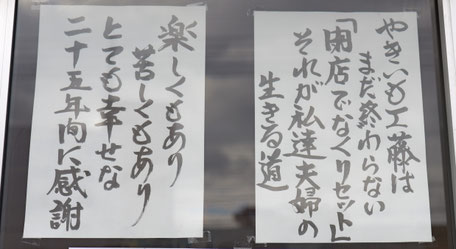 やきいも工藤は
まだ終わらない
「閉店でなくリセット」
それが私達夫婦の
生きる道
楽しくもあり
苦しくもあり
とても幸せな
二十五年間に感謝